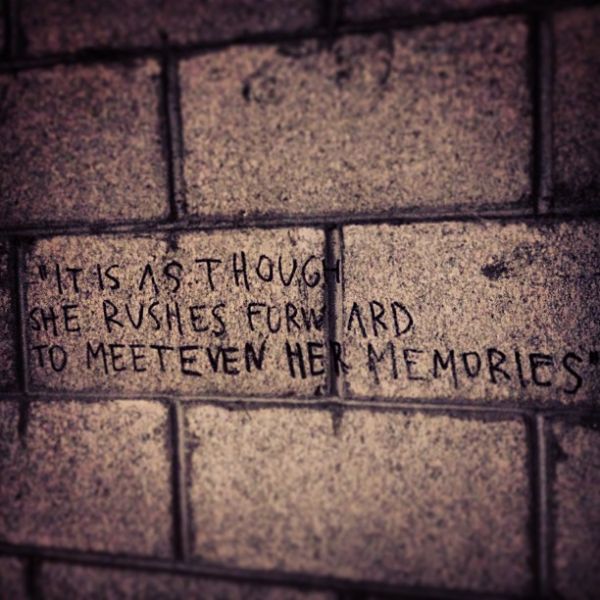 "IT IS AS THOUGH
SHE RUSHES FORWARD
TO MEET EVEN HER MEMORIES"